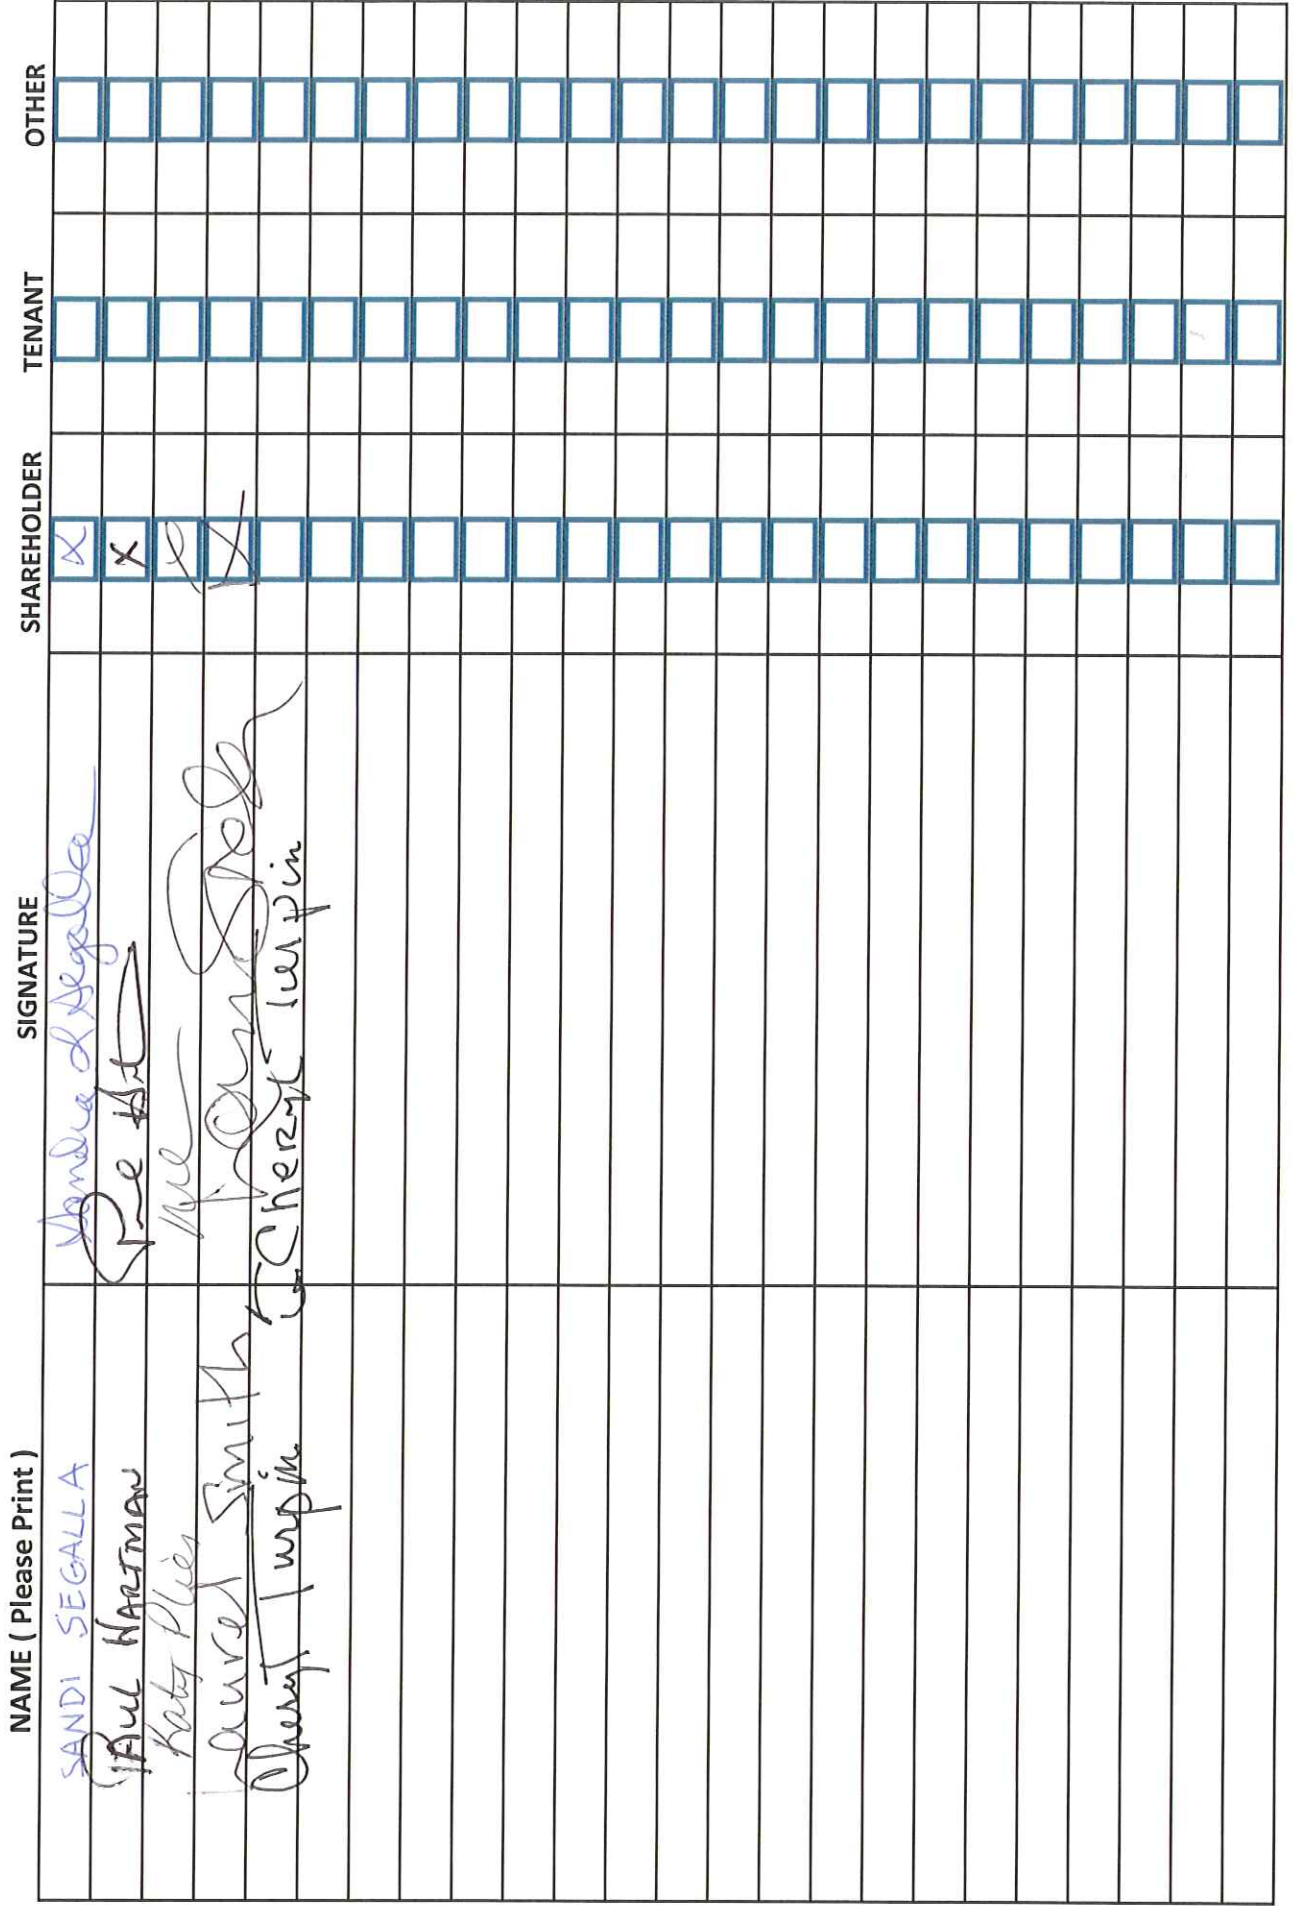 NAME ( Please Print ) SIGNATURE SHAREHOLDER TENANT OTHER
SANDI SEGALLA Sandra L Segalla X
PAUL HARTMAN X
Katy Plies
Laurel Smith X
Cheryl Turpin Cheryl Turpin